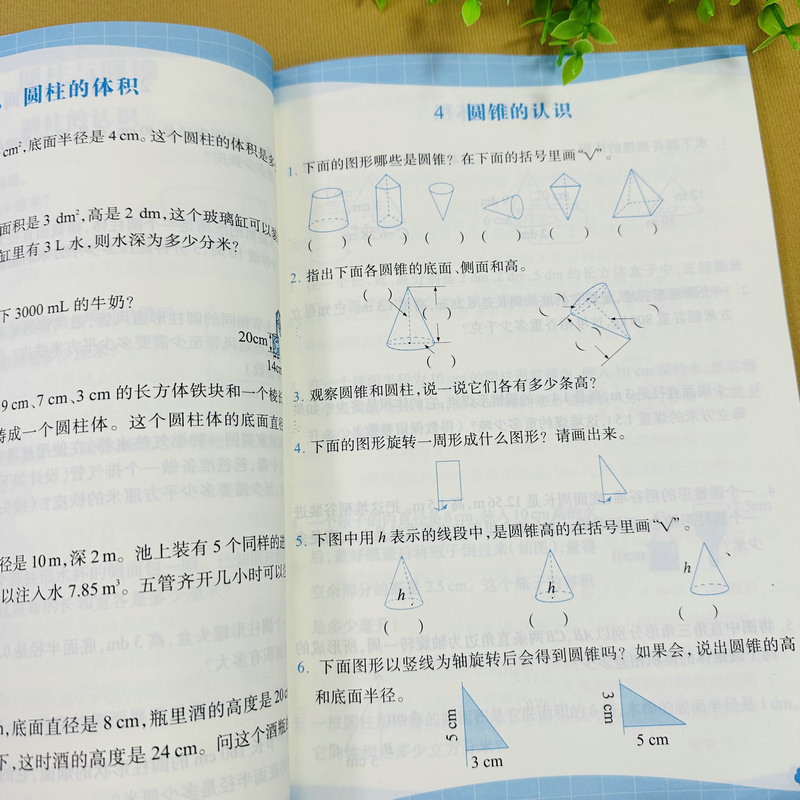 圆柱的体积
cm²,底面半径是4 cm。这个圆柱的体积是多
面积是3 dm²,高是2 dm,这个玻璃缸可以装
缸里有3 L水,则水深为多少分米?
下3000 mL的牛奶?
20cm
14cm
9 cm、7 cm、3 cm的长方体铁块和一个棱长
铸成一个圆柱体。这个圆柱体的底面直径
径是10 m,深2 m。池上装有5个同样的进
以注入水7.85 m³。五管齐开几小时可以注
,底面直径是8 cm,瓶里酒的高度是20
下,这时酒的高度是24 cm。问这个酒瓶
4 圆锥的认识
1. 下面的图形哪些是圆锥?在下面的括号里画“√”。
( ) ( ) ( ) ( ) ( ) ( )
2. 指出下面各圆锥的底面、侧面和高。
( ) ( ) ( )
( ) ( ) ( )
3. 观察圆锥和圆柱,说一说它们各有多少条高?
4. 下面的图形旋转一周形成什么图形?请画出来。
5. 下图中用h表示的线段中,是圆锥高的在括号里画“√”。
h h h
( ) ( ) ( )
6. 下面图形以竖线为轴旋转后会得到圆锥吗?如果会,说出圆锥的高
和底面半径。
5 cm
3 cm
3 cm
5 cm